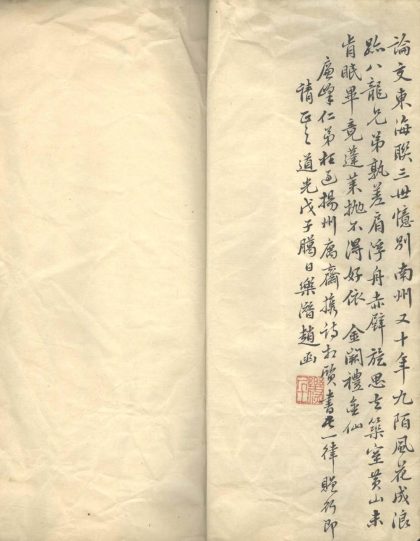 論交東海聯三世憶別南州又十年九陌風花成浪
跡八龍兄弟孰差肩浮舟赤壁旋思去築室黃山未
肯眠畢竟蓬萊拋不得好依 金闕禮金仙
廉峯仁弟枉過揚州寓齋攜詩相質書此一律贈行即
請正之道光戊子臘日樂潛趙函